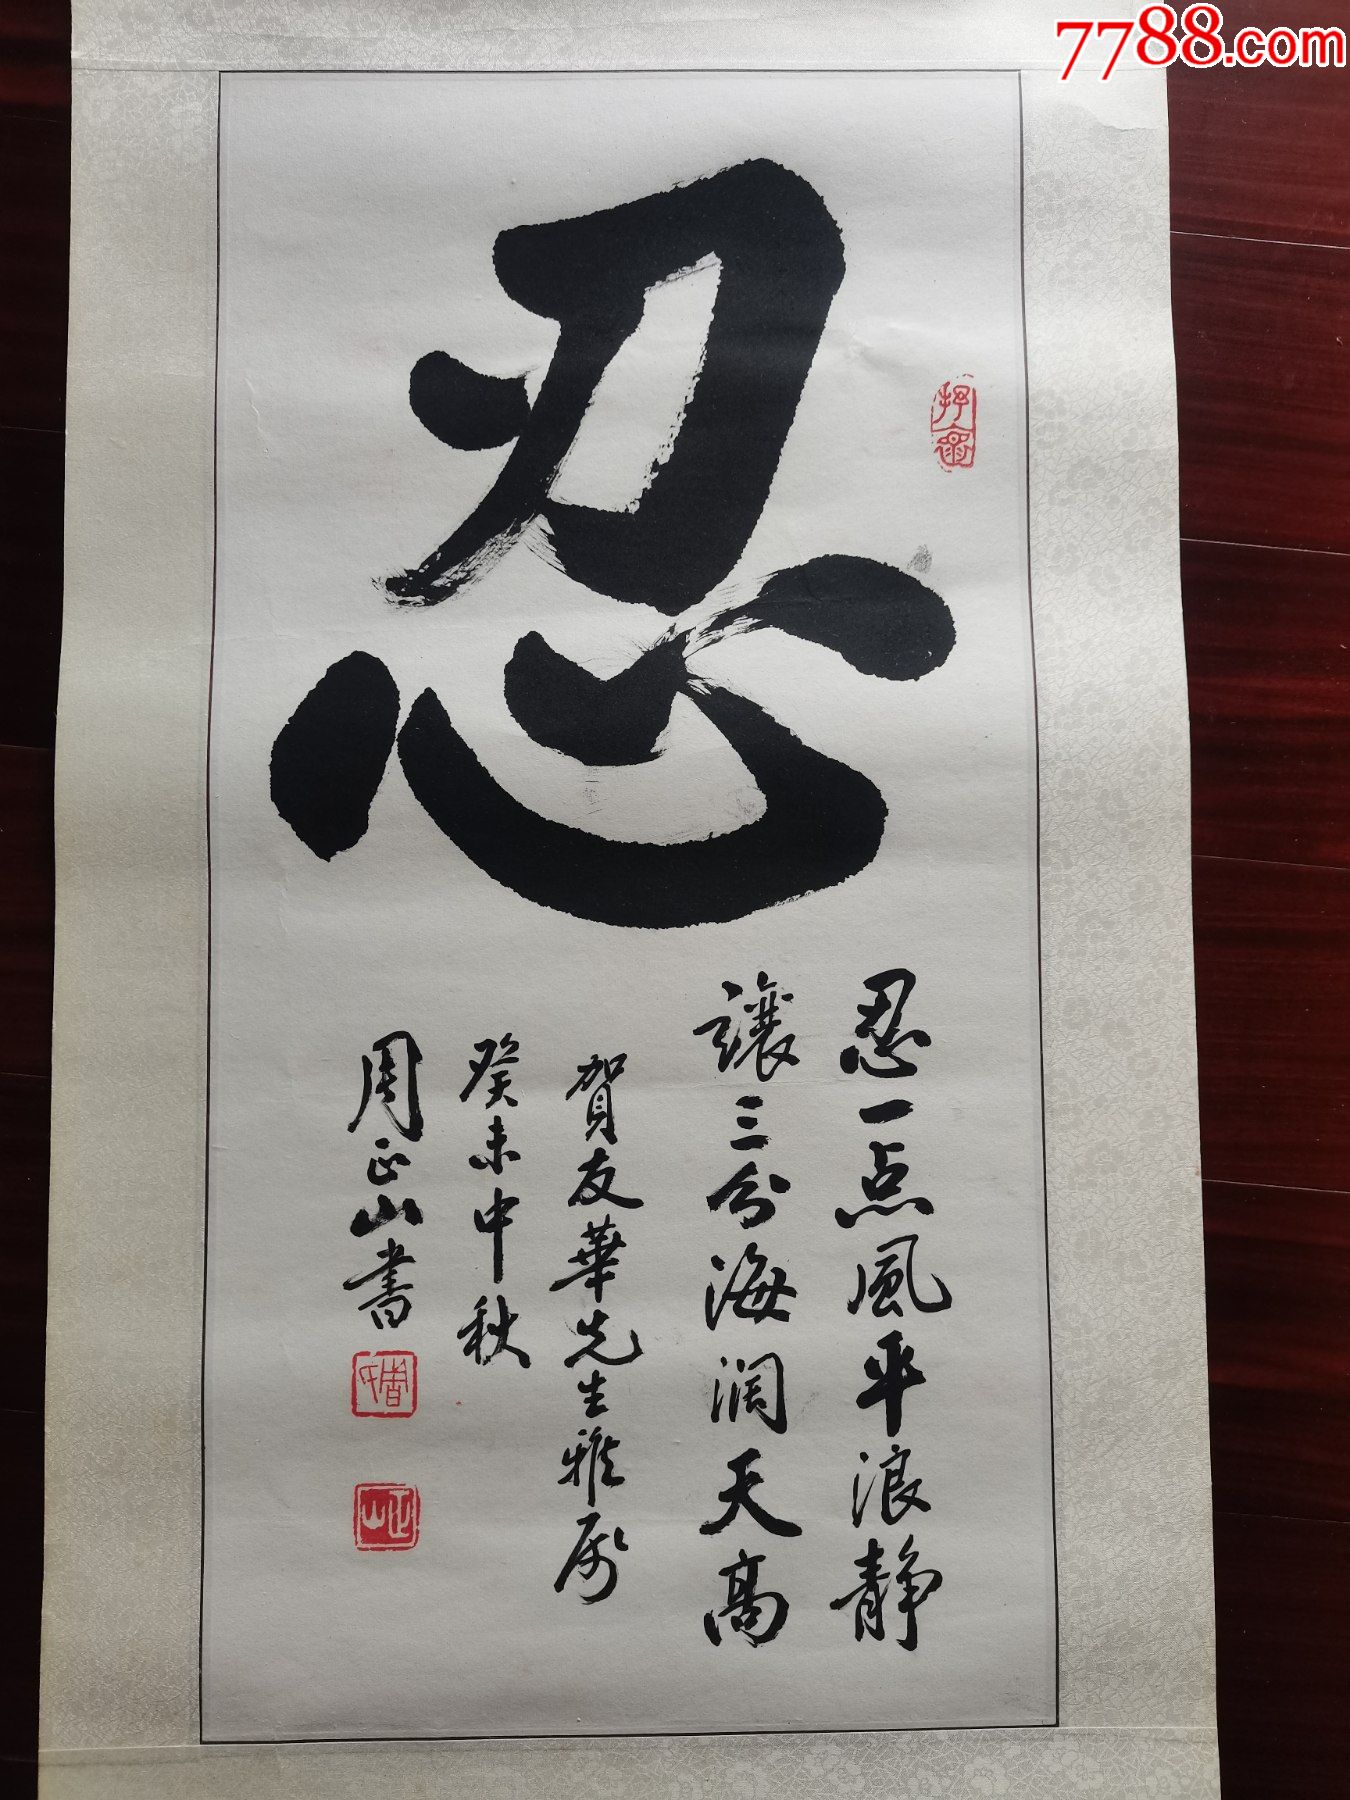 7788.com
忍
忍一点風平浪静
讓三分海阔天高
賀友華先生雅属
癸未中秋
周正山書
周氏
正山